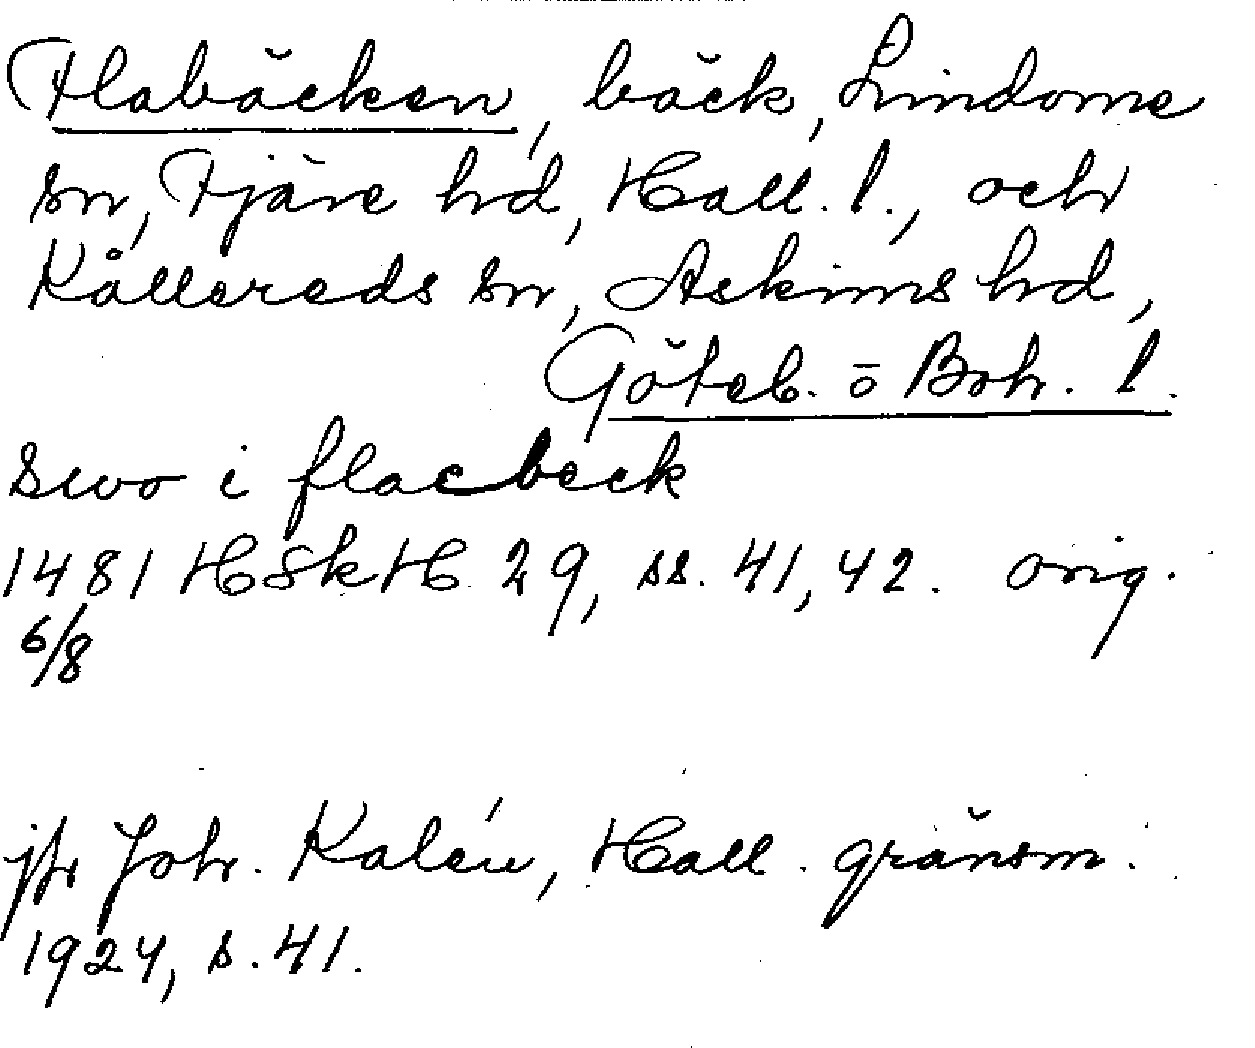 Flabäcken, bäck, Lindome
sn, Fjäre hd, Hall. l., och
Kållereds sn, Askims hd,
Göteb. o Boh. l.
swo i flacbeck
1481 HSkH 29, ss. 41, 42. orig.
6/8
jfr Joh. Kalén, Hall. gränsm.
1924, s. 41.